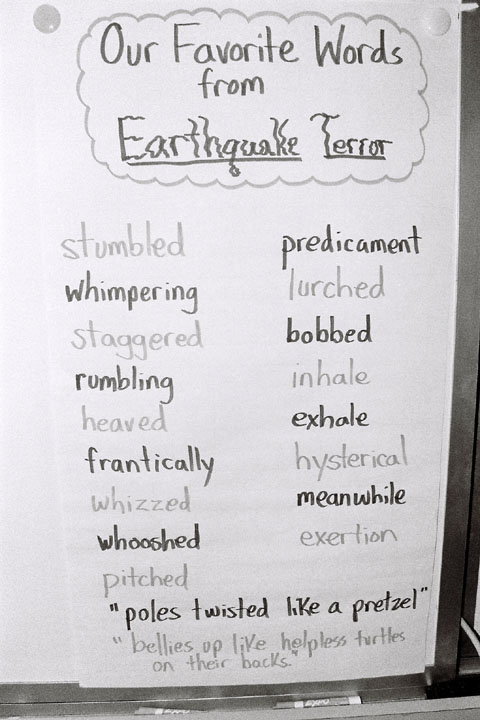 Our Favorite Words
from
Earthquake Terror
stumbled
whimpering
staggered
rumbling
heaved
frantically
whizzed
whooshed
pitched
predicament
lurched
bobbed
inhale
exhale
hysterical
meanwhile
exertion
"poles twisted like a pretzel"
"bellies up like helpless turtles
on their backs."